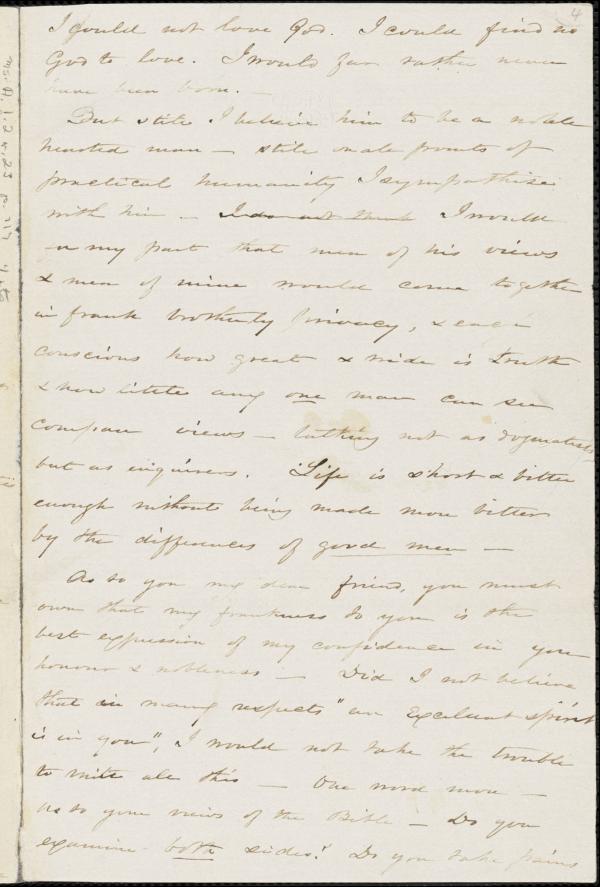 4
I could not love God. I could find no
God to love. I would far rather never
have been born. —
But still I believe him to be a noble
hearted man — still on all points of
practical humanity I sympathise
with him — I do not think I would
on my part that men of his views
& men of mine would come together
in frank brotherly privacy, & each
conscious how great & wide is truth
& how little any one man can see
compare views — talking not as dogmatists
but as inquirers. Life is short & bitter
enough without being made more bitter
by the differences of good men —
As to you my dear friend, you must
own that my frankness to you is the
best expression of my confidence in your
honour & nobleness — Did I not believe
that in many respects "an Excellent spirit
is in you", I would not take the trouble
to write all this — One word more —
As to your views of the Bible — Do you
examine both sides? Do you take pains